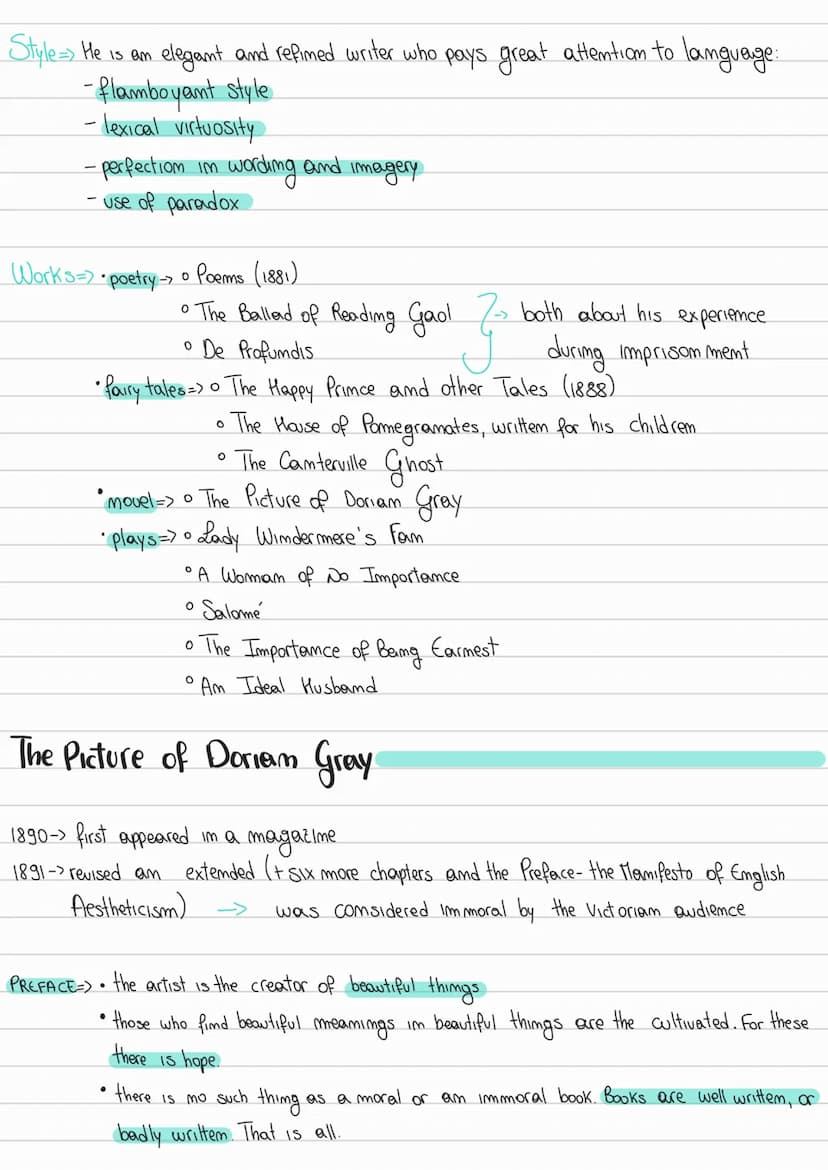 Style=> He is an elegant and refined writer who pays great attention to language:
- flamboyant style
- lexical virtuosity
- perfection in wording and imagery
- use of paradox
Works=> • poetry -> ○ Poems (1881)
○ The Ballad of Reading Gaol -> both about his experience
○ De Profundis during imprisonment
• fairy tales => ○ The Happy Prince and other Tales (1888)
○ The House of Pomegranates, written for his children
○ The Canterville Ghost
• novel => ○ The Picture of Dorian Gray
• plays => ○ Lady Windermere's Fan
○ A Woman of No Importance
○ Salomé
○ The Importance of Being Earnest
○ An Ideal Husband
The Picture of Dorian Gray
1890-> first appeared in a magazine
1891-> revised an extended (+ six more chapters and the Preface- the Manifesto of English
Aestheticism) -> was considered immoral by the Victorian audience
PREFACE=> • the artist is the creator of beautiful things
• those who find beautiful meanings in beautiful things are the cultivated. For these
there is hope.
• there is no such thing as a moral or an immoral book. Books are well written, or
badly written. That is all.